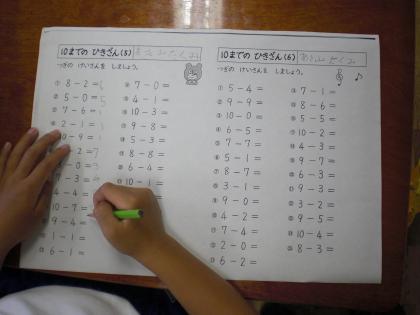 10までの ひきざん(5)
つぎの けいさんを しましょう。
① 8 - 2 = 6
② 5 - 0 = 5
③ 7 - 6 =
④ 2 - 1 =
10 - 9 = 1
- 2 = 7
- 0 =
7 - 3 =
4 - 4 =
10 - 7 =
9 - 4 =
1 - 1 =
6 - 1 =
7 - 0 =
4 - 1 =
10 - 3 =
9 - 8 =
5 - 3 =
8 - 8 =
6 - 4 =
10 - 1 =
10までの ひきざん(6)
つぎの けいさんを しましょう。
① 5 - 4 =
② 9 - 9 =
③ 10 - 0 =
④ 6 - 5 =
⑤ 7 - 7 =
⑥ 5 - 1 =
⑦ 8 - 7 =
⑧ 3 - 1 =
⑨ 9 - 0 =
⑩ 4 - 2 =
⑪ 7 - 4 =
⑫ 2 - 0 =
⑬ 6 - 2 =
⑭ 7 - 1 =
⑮ 8 - 6 =
⑯ 5 - 5 =
⑰ 10 - 2 =
⑱ 4 - 3 =
⑲ 9 - 7 =
⑳ 6 - 3 =
9 - 3 =
3 - 2 =
9 - 5 =
10 - 4 =
8 - 3 =